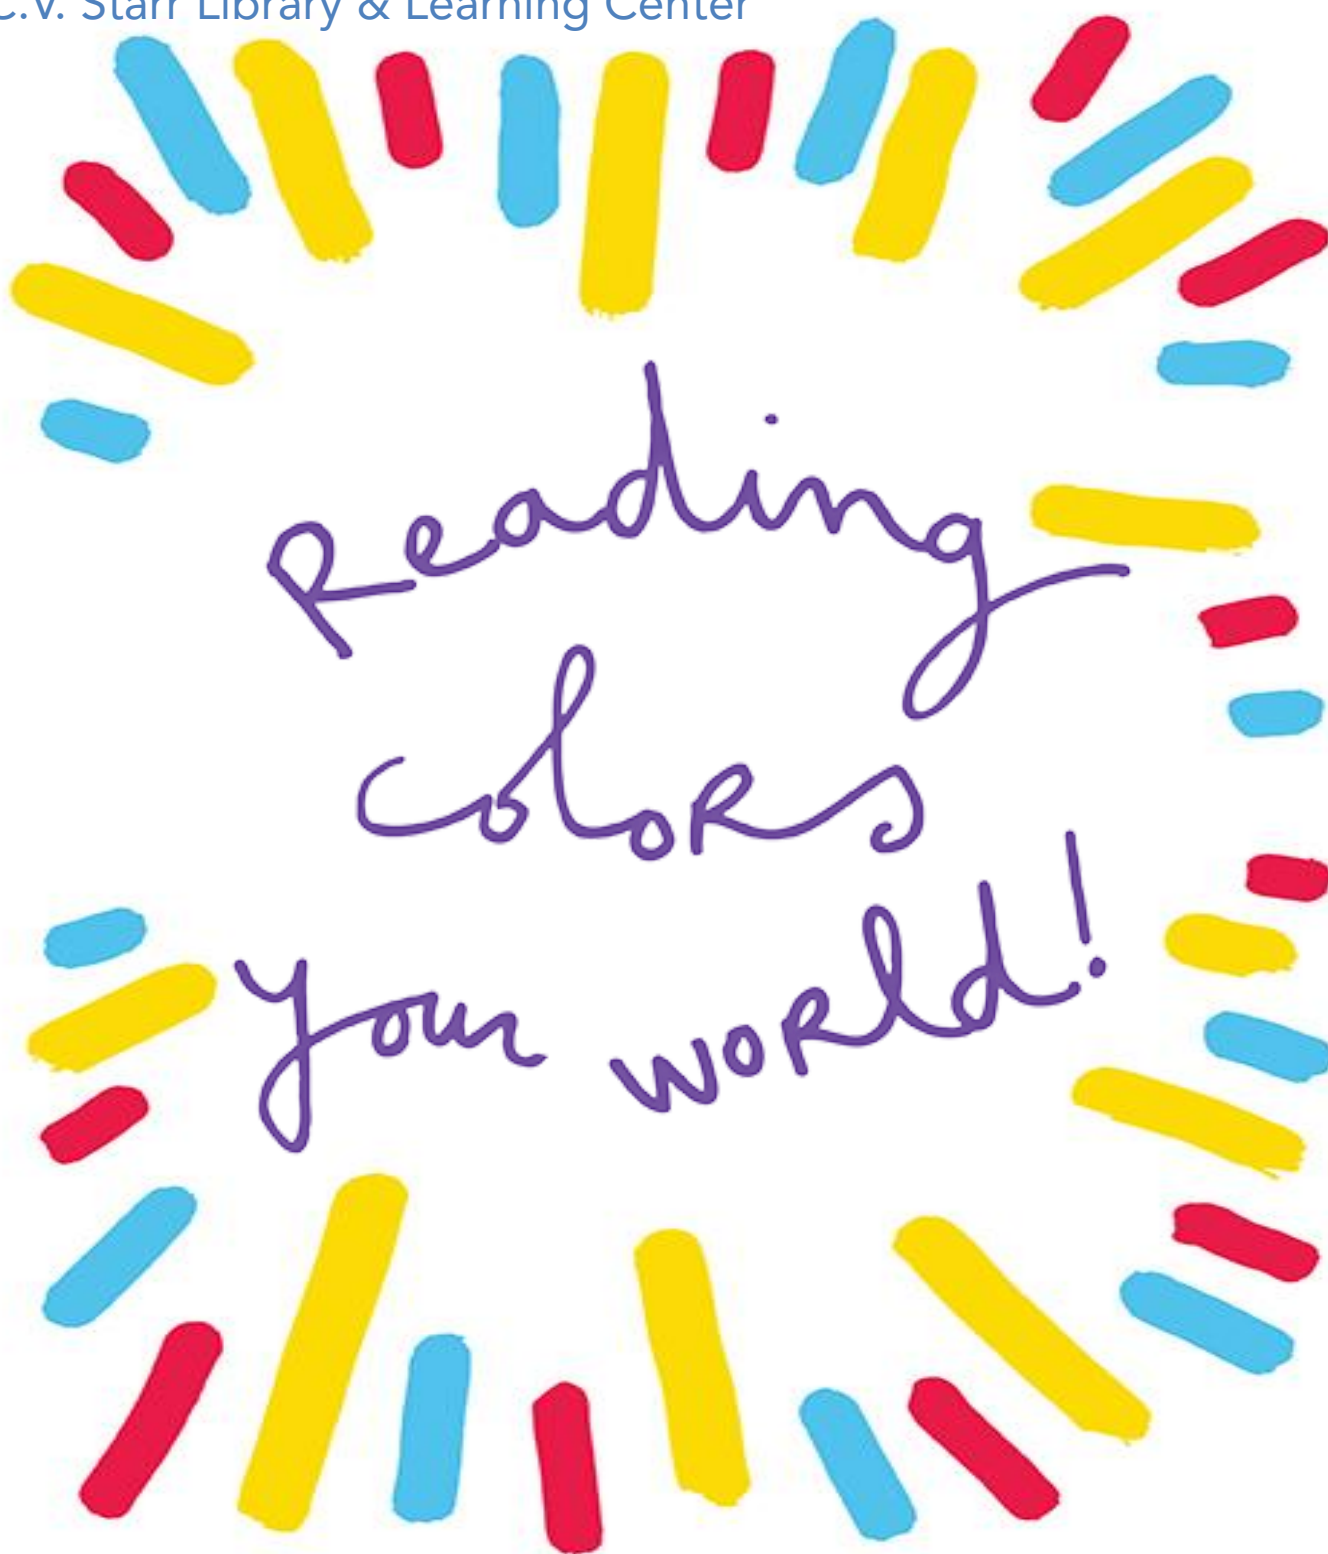 C.V. Starr Library & Learning Center
Reading
colors
your world!